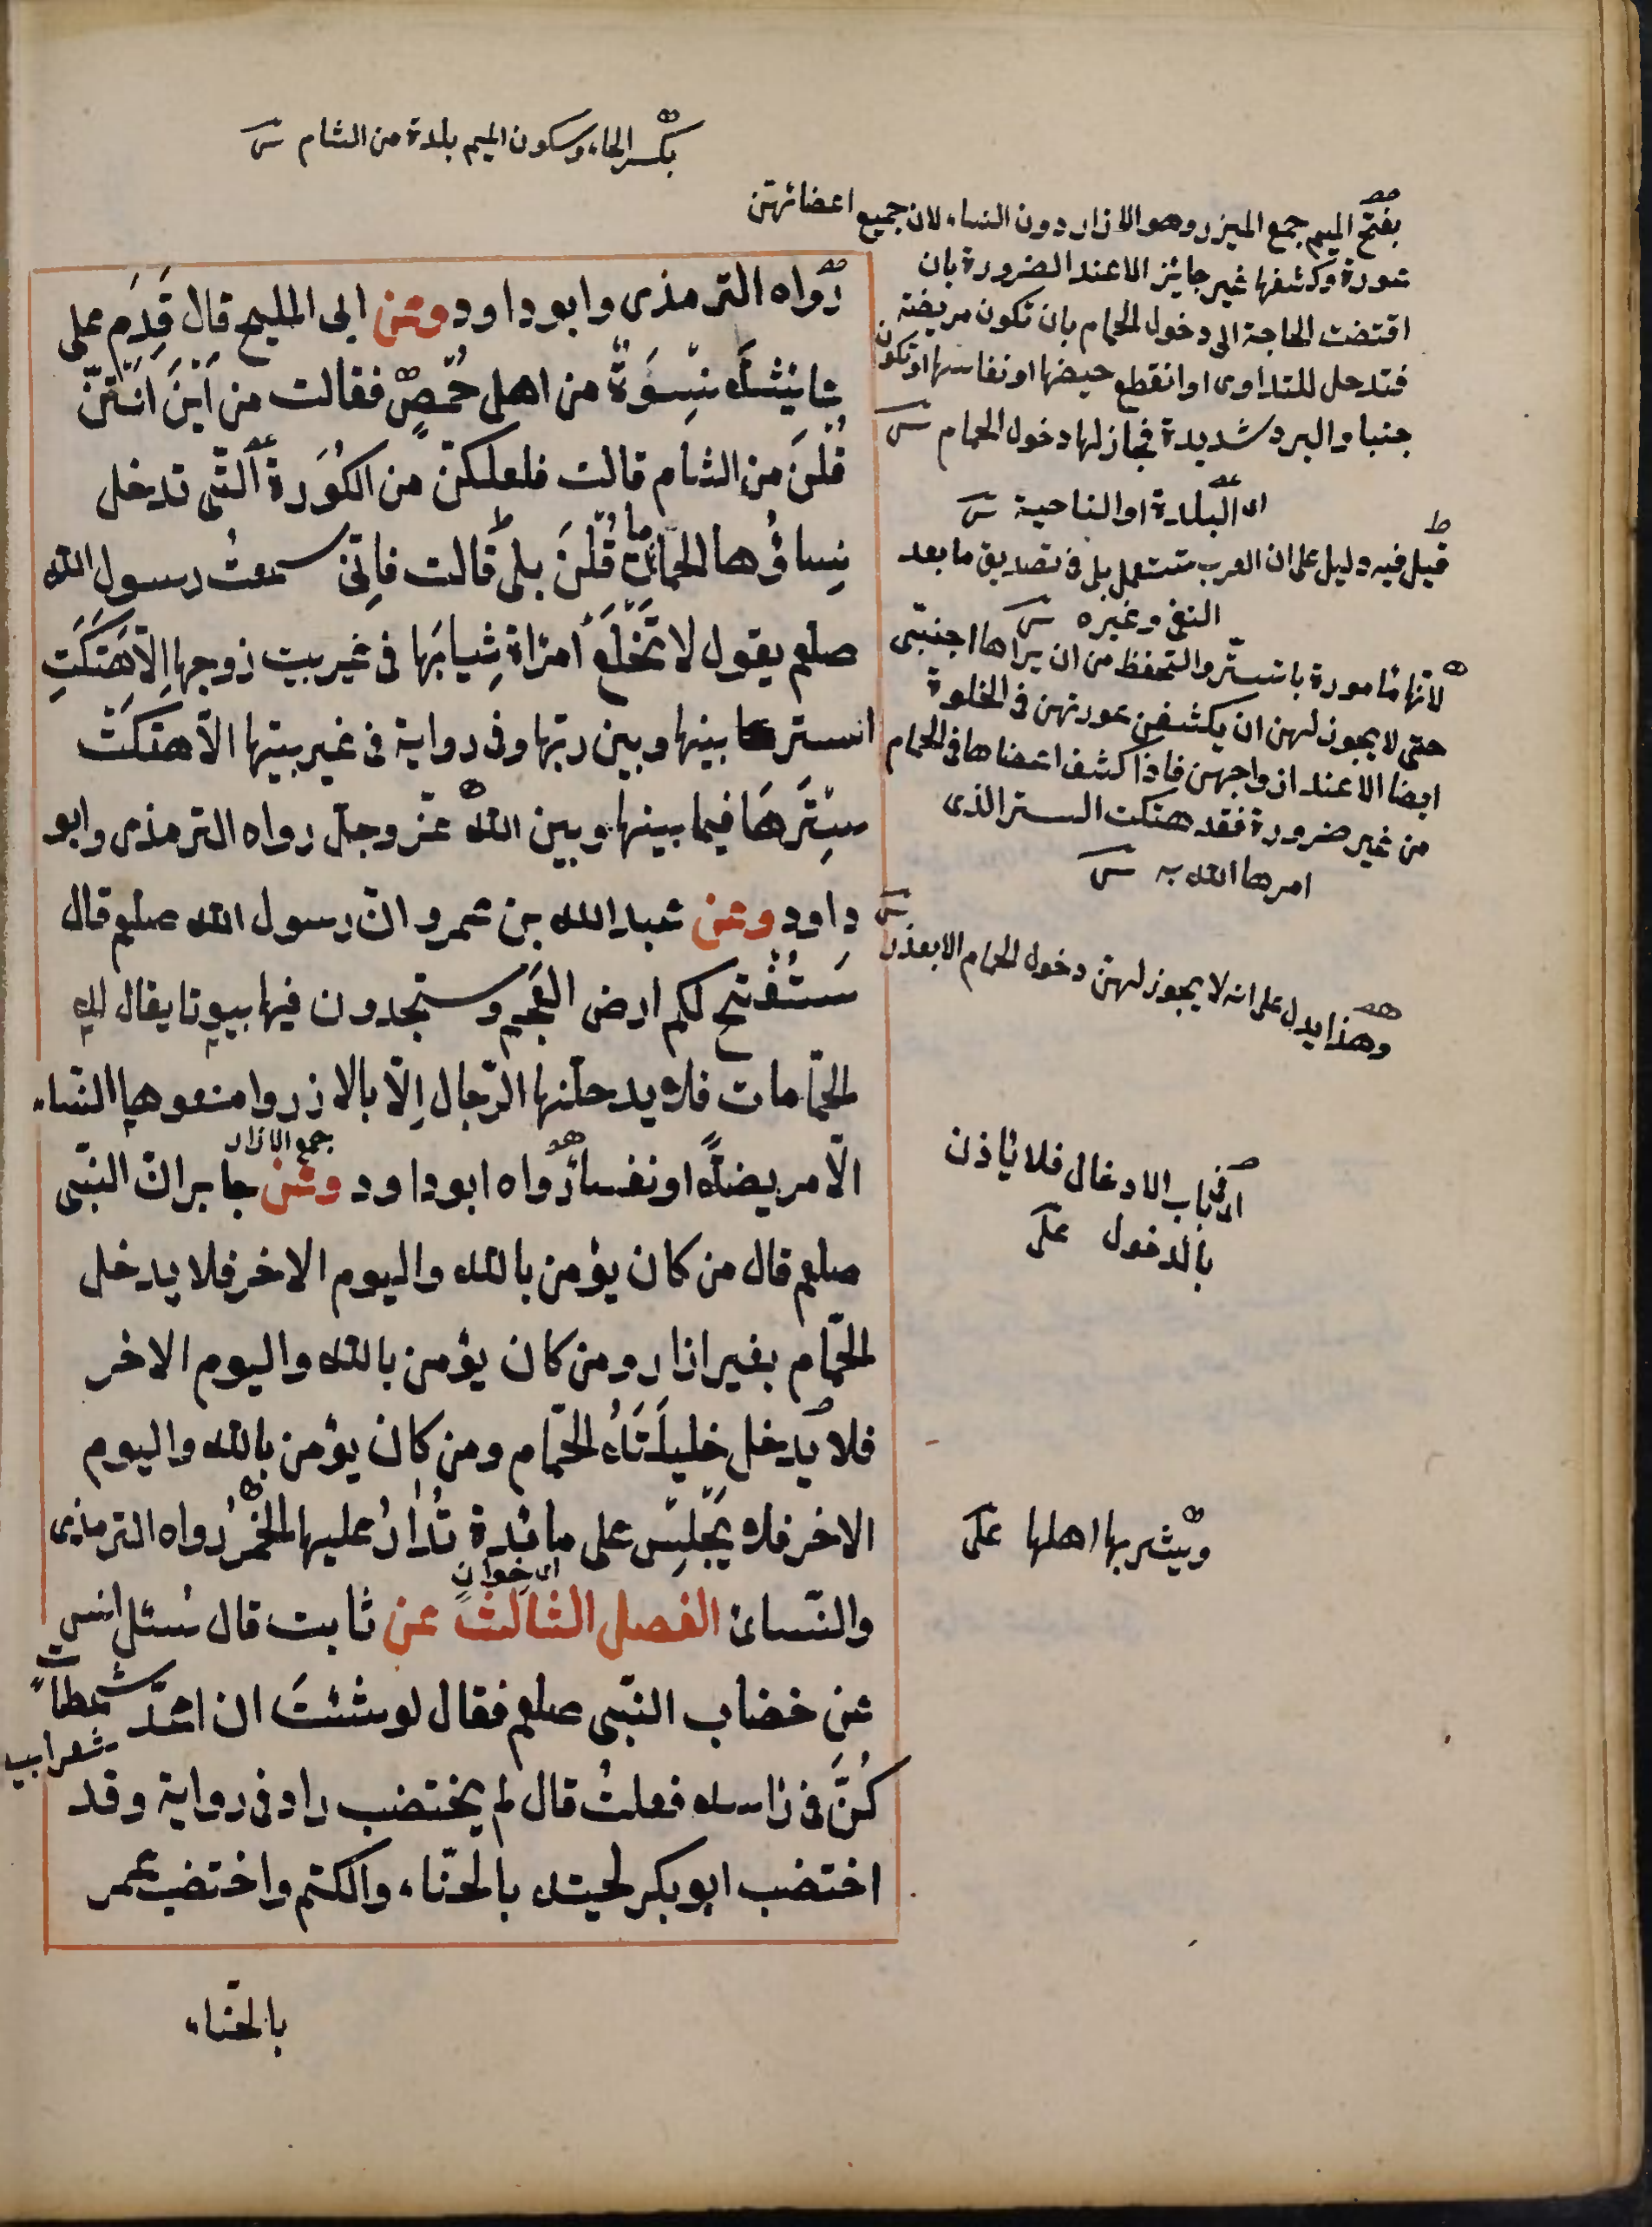 بكسر الحاء وسكون الميم بلدة من الشام
بفتح الميم جمع الميزر وهو الازار دون النساء لان جميع اعضائهن
عورة وكشفها غير جايز الا عند الضرورة بان
اقتضت الحاجة الى دخول الحمام بان تكون مريضة
فتدخل للتداوى او انقطع حيضها او نفاسها او تكون
جنبا والبرد شديدة فجاز لها دخول الحمام
اى البلدة او الناحية
قيل فيه دليل على ان العرب تستعمل بلى فى تصديق ما بعد
النفى وغيره
لانها مامورة بالتستر والتحفظ من ان يراها اجنبى
حتى لا يجوز لهن ان يكشفن عورتهن فى الخلوة
ايضا الا عند ازواجهن فاذا كشف اعضاها فى الحمام
من غير ضرورة فقد هتكت الستر الذى
امرها الله به
وهذا يدل على انه لا يجوز لهن دخول الحمام الا بعذر
اى فى باب الادخال فلا ياذن
بالدخول
ويشربها اهلها
رواه الترمذى وابو داود وعن ابى المليح قال قَدِمَ على
عايشة نِسوَةٌ من اهل حمص فقالت من اَيْنَ اَنتنّ
قُلنَ من الشام قالت فلعلكنّ من الكُورَة الّتى تدخل
نِساؤُها الحمّامات قُلنَ بلى قالت فاِنّى سمعتُ رسول الله
صلعم يقول لا تَخلَع امراة ثِيابَها فى غير بيت زوجها اِلّا هَتَكَتِ
الستر بينها وبين ربّها وفى رواية فى غير بيتها الّا هتكَت
سِترَهَا فيما بينها وبين الله عزّ وجلّ رواه الترمذى وابو
داود وعن عبد الله بن عمرو انّ رسول الله صلعم قال
سَتُفتح لكم ارض العَجم وستجدون فيها بيوتا يقال لها
الحمّامات فلا يدخلنّها الرّجال اِلّا بالازر وامنعوها النّساء
جمع الازار
الّا مريضةً او نفساء رواه ابو داود وعن جابر انّ النبّى
صلعم قال من كان يؤمن بالله واليوم الاخر فلا يدخل
الحمّام بغير ازار ومن كان يؤمن بالله واليوم الاخر
فلا يُدخل خليلَتَهُ الحمّام ومن كان يؤمن بالله واليوم
الاخر فلا يَجلِس على مائدة تُدَارُ عليها الخَمرُ رواه الترمذى
اى خوان
والنّسائ الفصل الثالث عن ثابت قال سُئل انس
عن خضاب النبّى صلعم فقال لو شئتَ ان اعُدّ شمطات
شعر ابيض
كُنَّ فى راسه فعلتُ قال لم يختضب زاد فى رواية وقد
اختضب ابو بكر لحيته بالحنّاء والكتم واختضب عمر
بالحنّاء